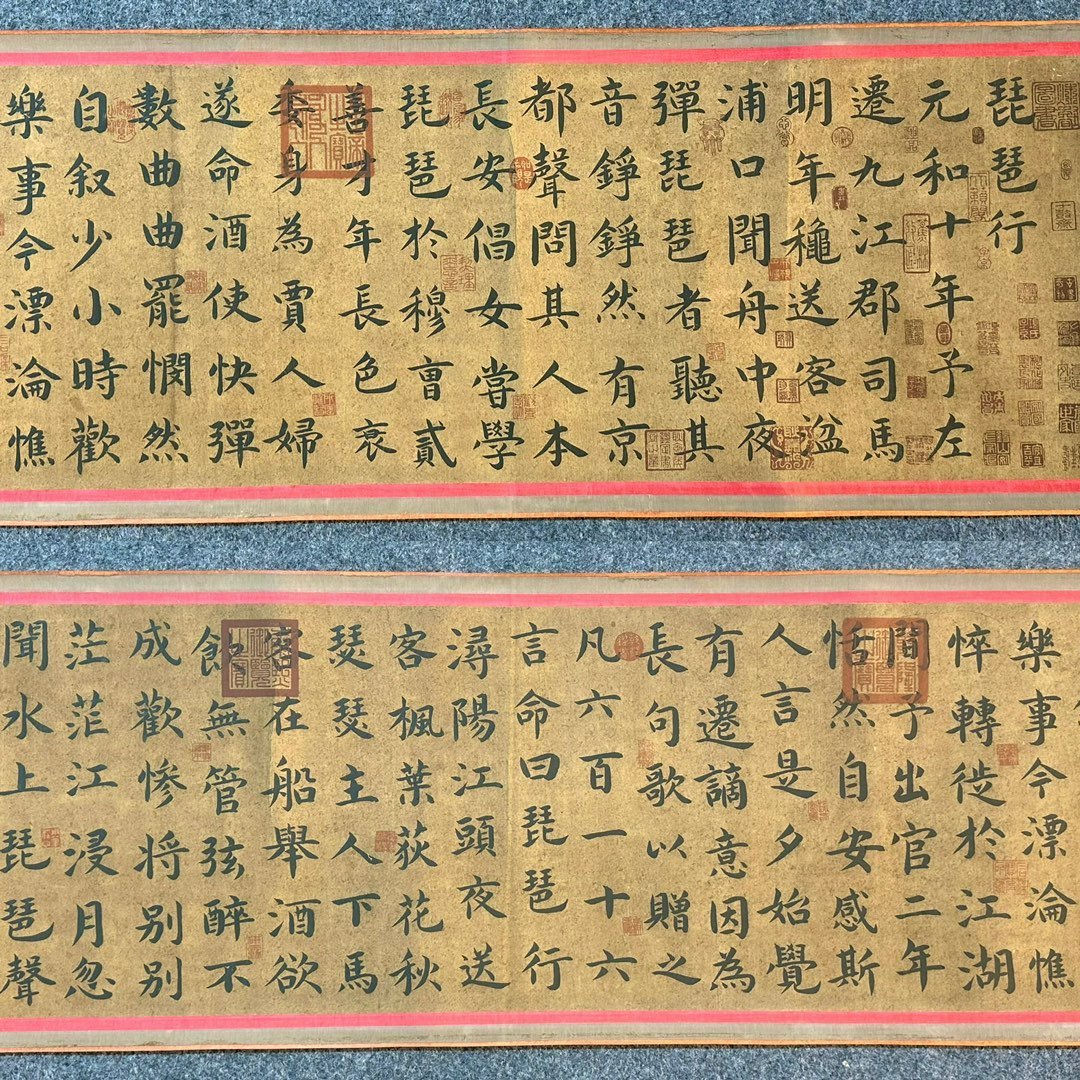 琵琶行
元和十年予左
遷九江郡司馬
明年龝送客湓
浦口聞舟中夜
彈琵琶者聽其
音錚錚然有京
都聲問其人本
長安倡女甞學
琵琶於穆曹貳
善才年長色衰
委身為賈人婦
遂命酒使快彈
數曲曲罷憫然
自叙少小時歡
樂事今漂淪憔
樂事今漂淪憔
悴轉徙於江湖
間予出官二年
恬然自安感斯
人言是夕始覺
有遷謫意因為
長句歌以贈之
凡六百一十六
言命曰琵琶行
潯陽江頭夜送
客楓葉荻花秋
瑟瑟主人下馬
客在船舉酒欲
飲無管弦醉不
成歡慘将别别
茫茫江浸月忽
聞水上琵琶聲